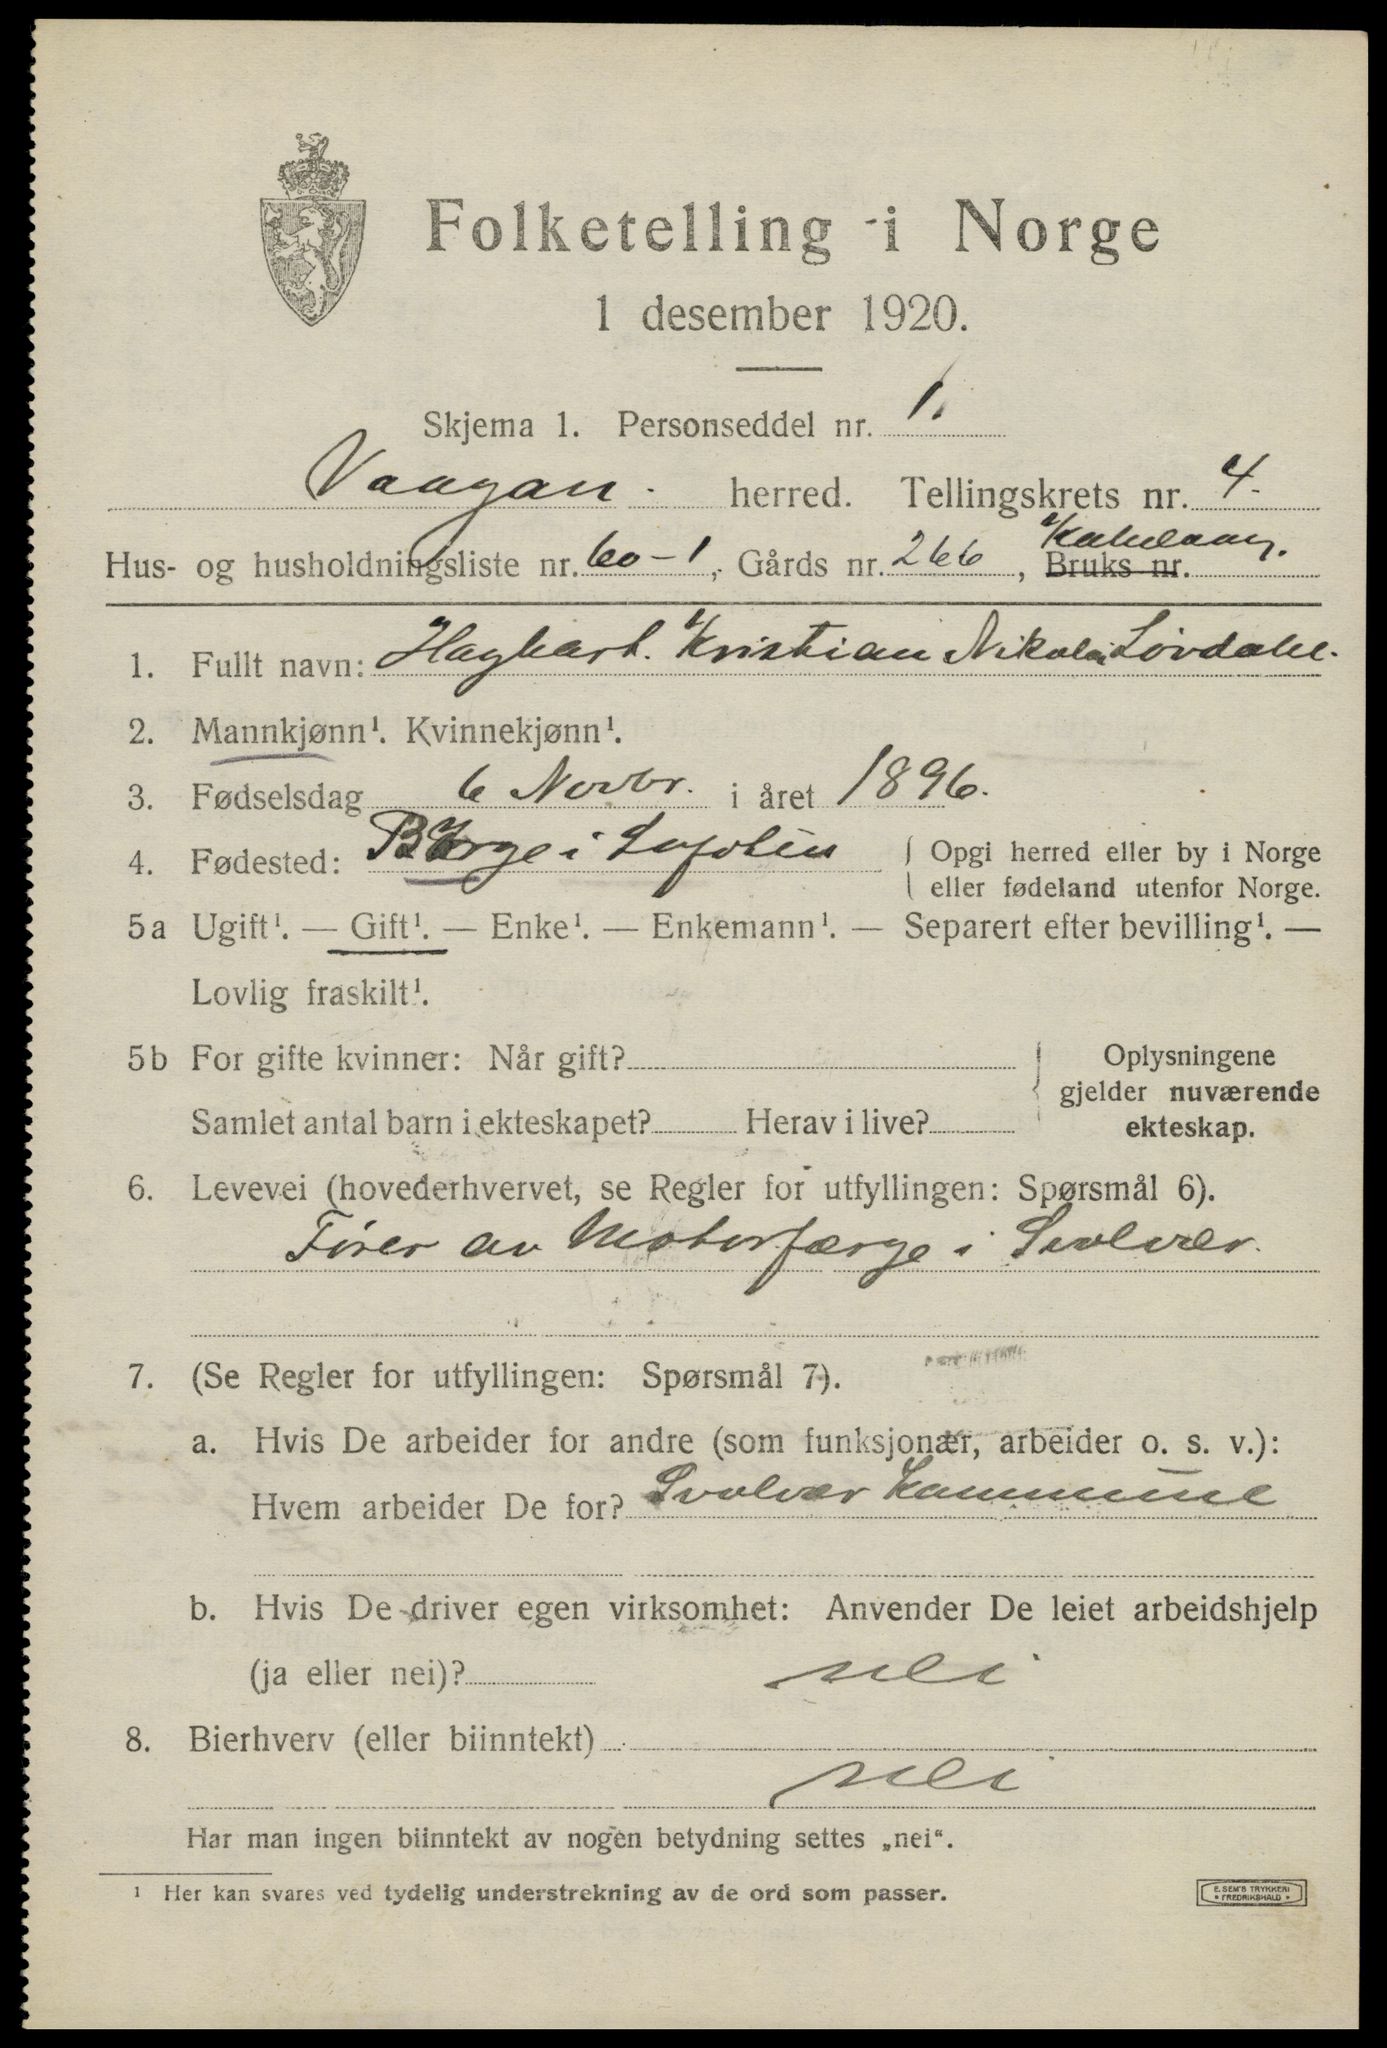 Folketelling i Norge
1 desember 1920.
Skjema 1. Personseddel nr. 1.
Vaagan. herred. Tellingskrets nr. 4.
Kabelvaag.
Hus- og husholdningsliste nr. 60-1, Gårds nr. 266, Bruks nr.
1. Fullt navn: Hagbart. Kristian Nikolai Lövdahl.
2. Mannkjønn¹. Kvinnekjønn¹.
3. Fødselsdag 6 Novbr. i året 1896.
4. Fødested: Borge i Lofoten { Opgi herred eller by i Norge
eller fødeland utenfor Norge.
5a Ugift¹. — Gift¹. — Enke¹. — Enkemann¹. — Separert efter bevilling¹. —
Lovlig fraskilt¹.
5b For gifte kvinner: Når gift? { Oplysningene
gjelder nuværende
Samlet antal barn i ekteskapet? Herav i live? ekteskap.
6. Levevei (hovederhvervet, se Regler for utfyllingen: Spørsmål 6).
Förer av Motorfærge i Svolvær.
7. (Se Regler for utfyllingen: Spørsmål 7).
a. Hvis De arbeider for andre (som funksjonær, arbeider o. s. v.):
Hvem arbeider De for? Svolvær Kommune
b. Hvis De driver egen virksomhet: Anvender De leiet arbeidshjelp
(ja eller nei)? nei
8. Bierhverv (eller biinntekt)
nei
Har man ingen biinntekt av nogen betydning settes „nei“.
¹ Her kan svares ved tydelig understrekning av de ord som passer.
E. SEM'S TRYKKERI
• FREDRIKSHALD •